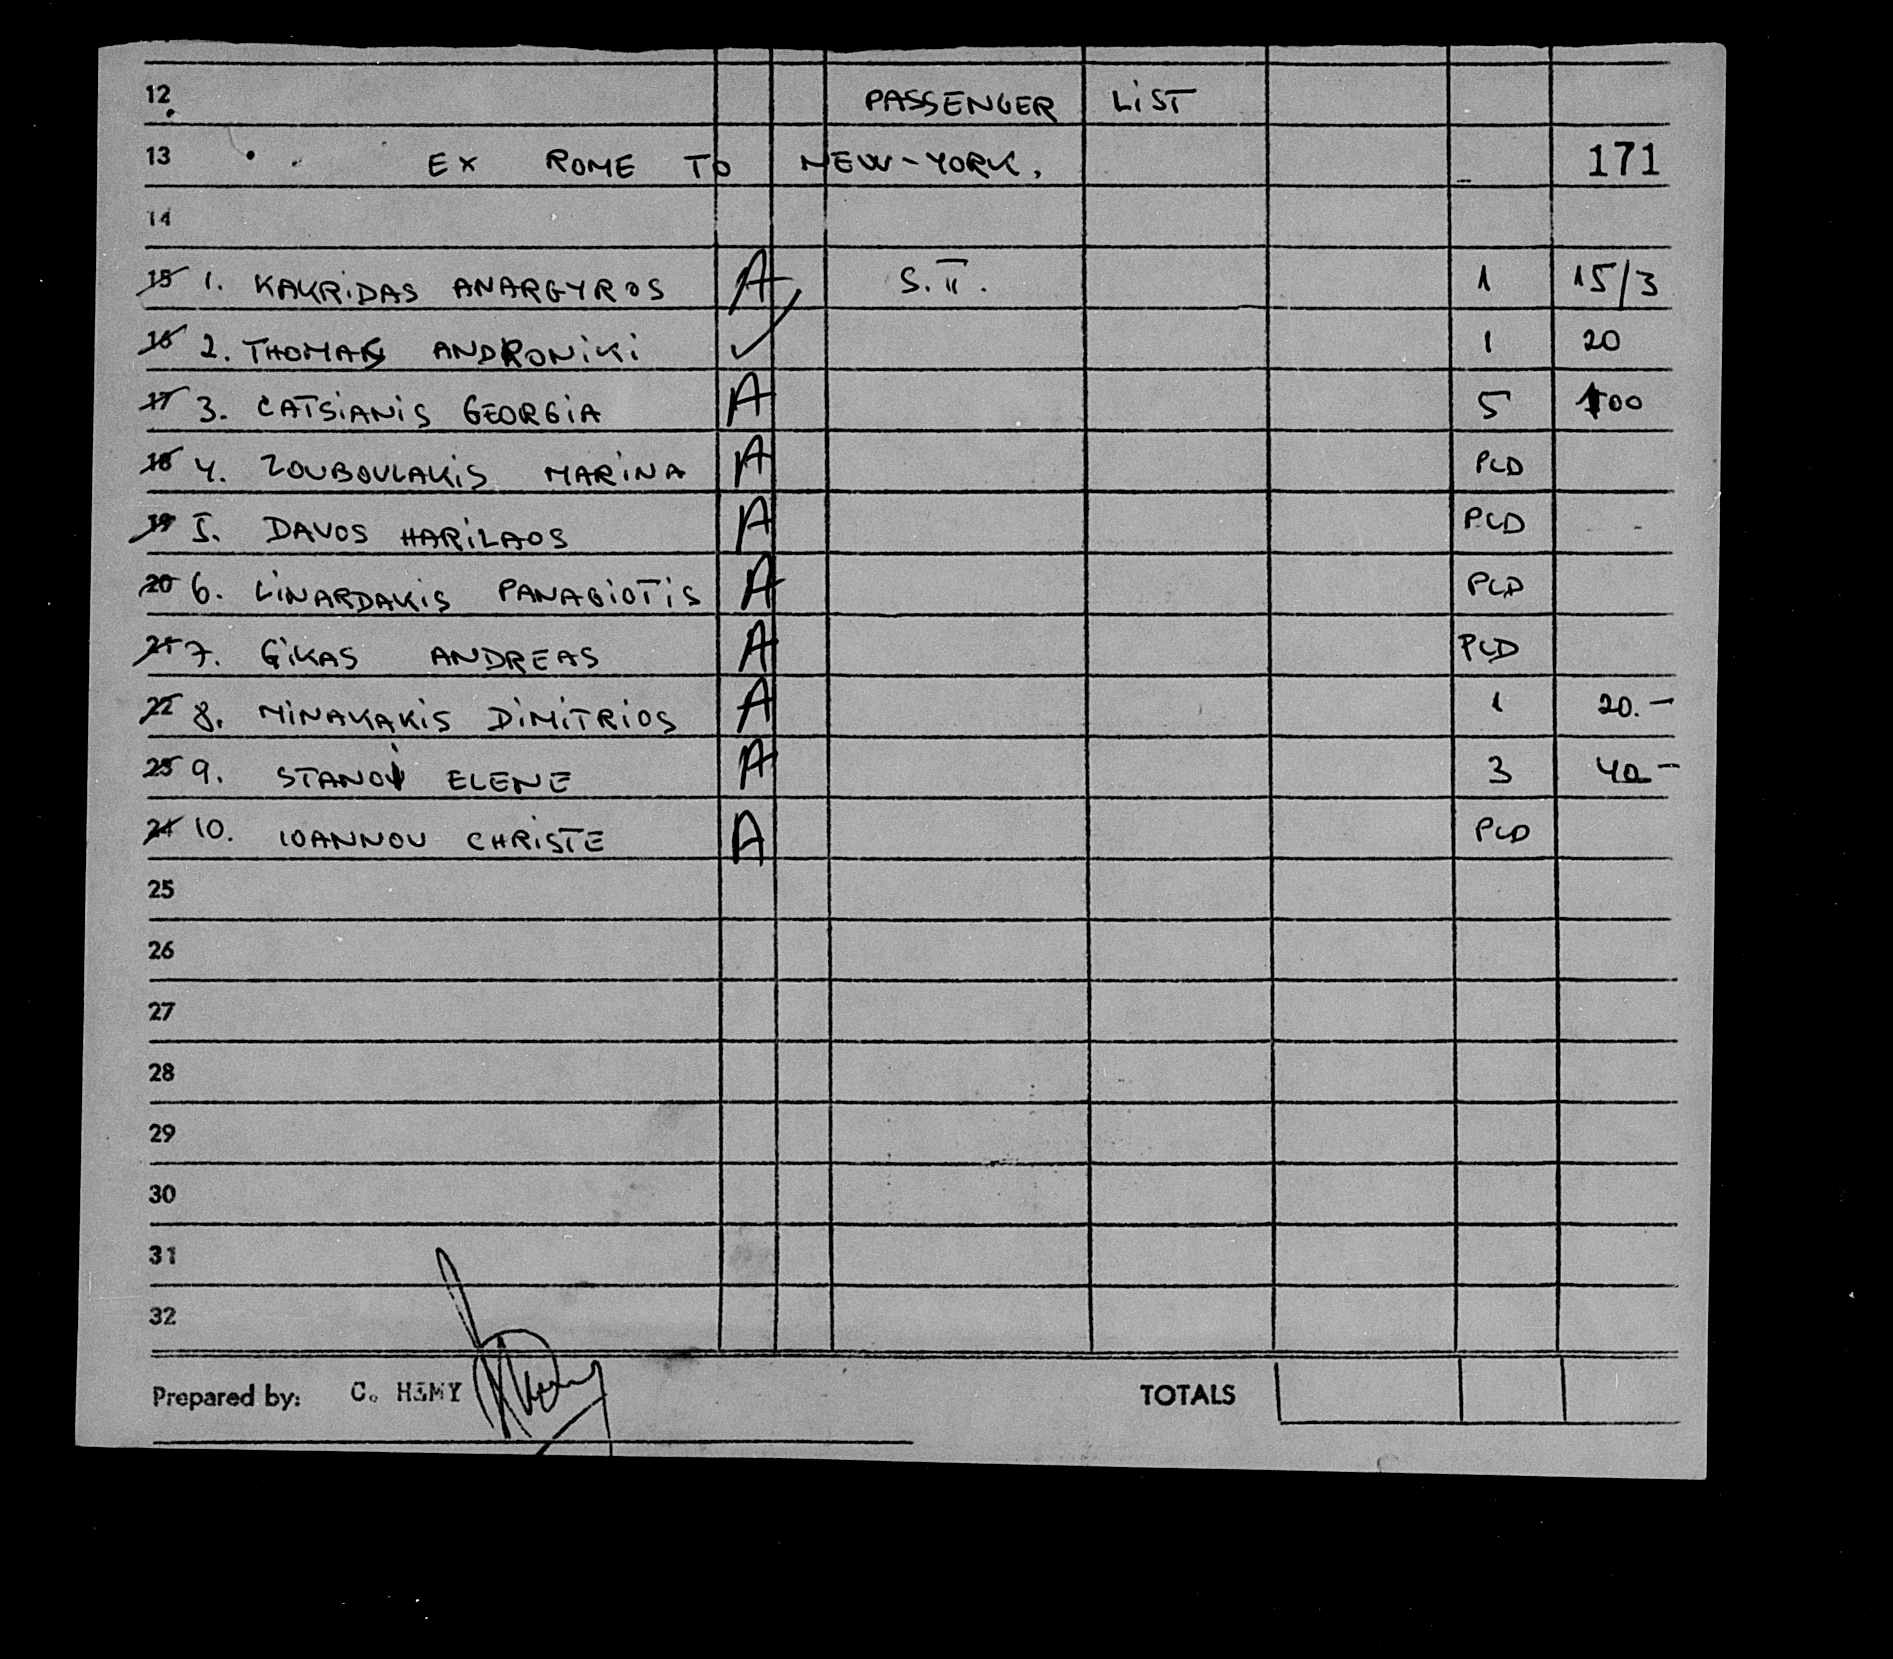 12. PASSENGER LIST
13 EX ROME TO NEW-YORK. 171
14
15 1. KAKRIDAS ANARGYROS A S.II. 1 15/3
16 2. THOMAS ANDRONIKI ✓ 1 20
17 3. CATSIANIS GEORGIA A 5 100
18 4. ZOUBOULAKIS MARINA A PLD
19 5. DAVOS HARILAOS A PLD
20 6. LINARDAKIS PANAGIOTIS A PLD
21 7. GIKAS ANDREAS A PLD
22 8. MINAKAKIS DIMITRIOS A 1 20.-
23 9. ELENE A 3 40-
24 10. IOANNOU CHRISTE A PLD
25
26
27
28
29
30
31
32
Prepared by: C. TOTALS